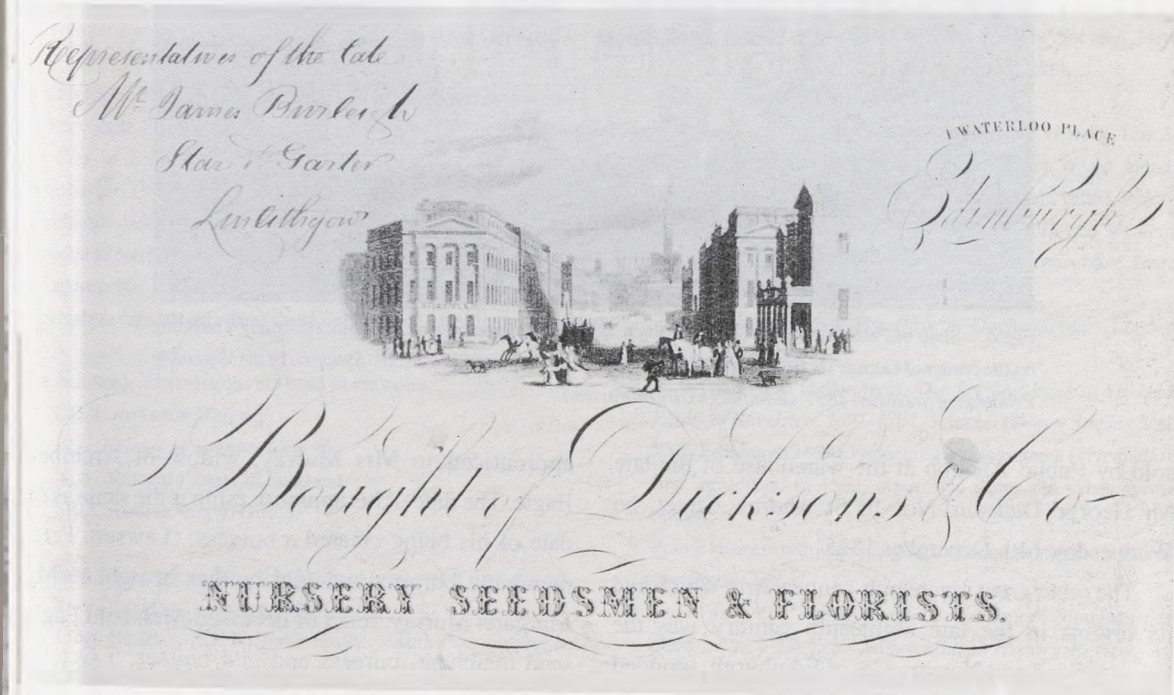 Representatives of the late
Mr. James Burleigh
Star & Garter
Linlithgow
1 WATERLOO PLACE
Edinburgh
Bought of Dicksons & Co
NURSERY SEEDSMEN & FLORISTS.